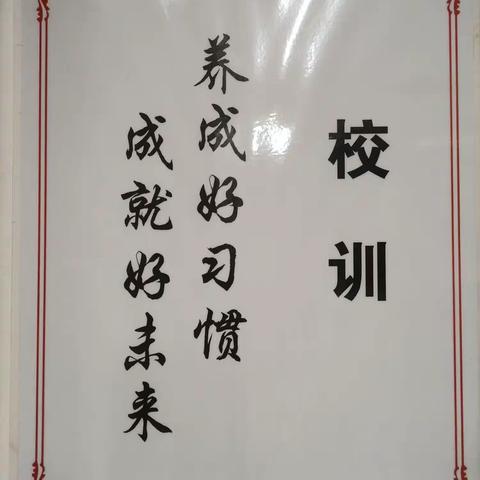 校训
养成好习惯
成就好未来